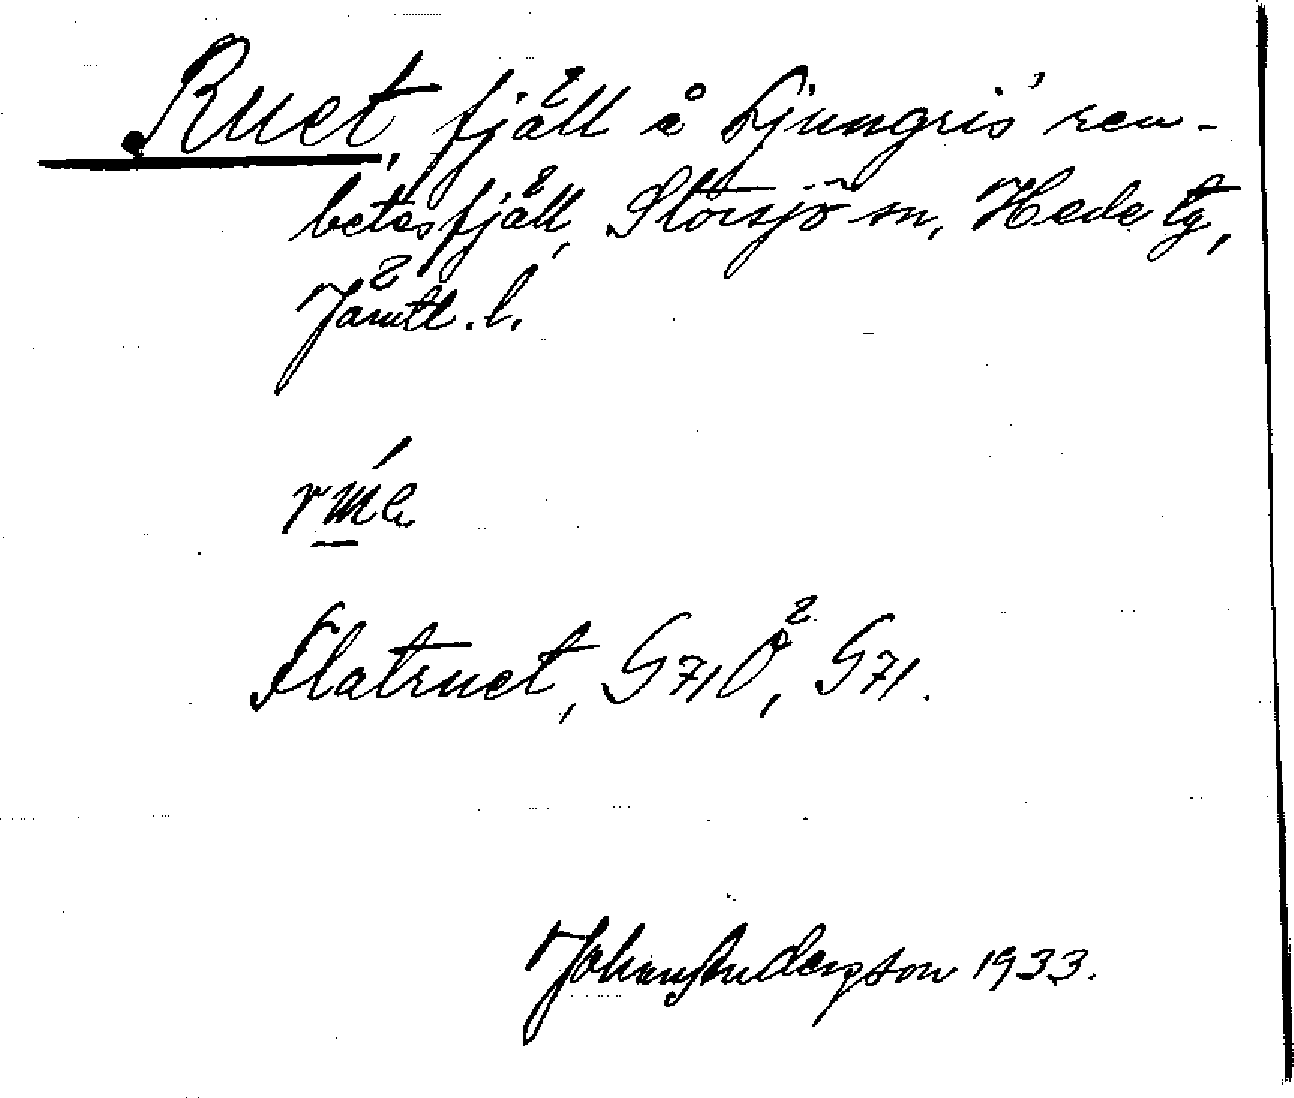 Ruet, fjäll å Ljungris' ren-
betesfjäll, Storsjö sn, Hede tg,
Jämtl. l.
Flatruet, G710, G71.
Johan Anderson 1933.